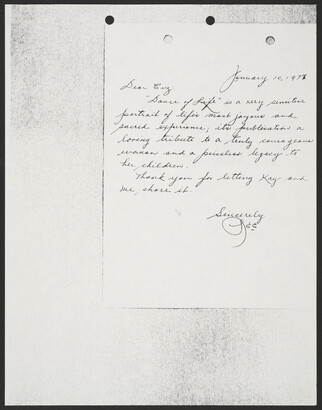 January 10, 1978
Dear
"Dance of Life" is a very sensitive
portrait of life's most joyous and
sacred experience; its publication a
loving tribute to a truly courageous
woman and a priceless legacy to
her children.
Thank you for letting Kay and
me, share it.
Sincerely